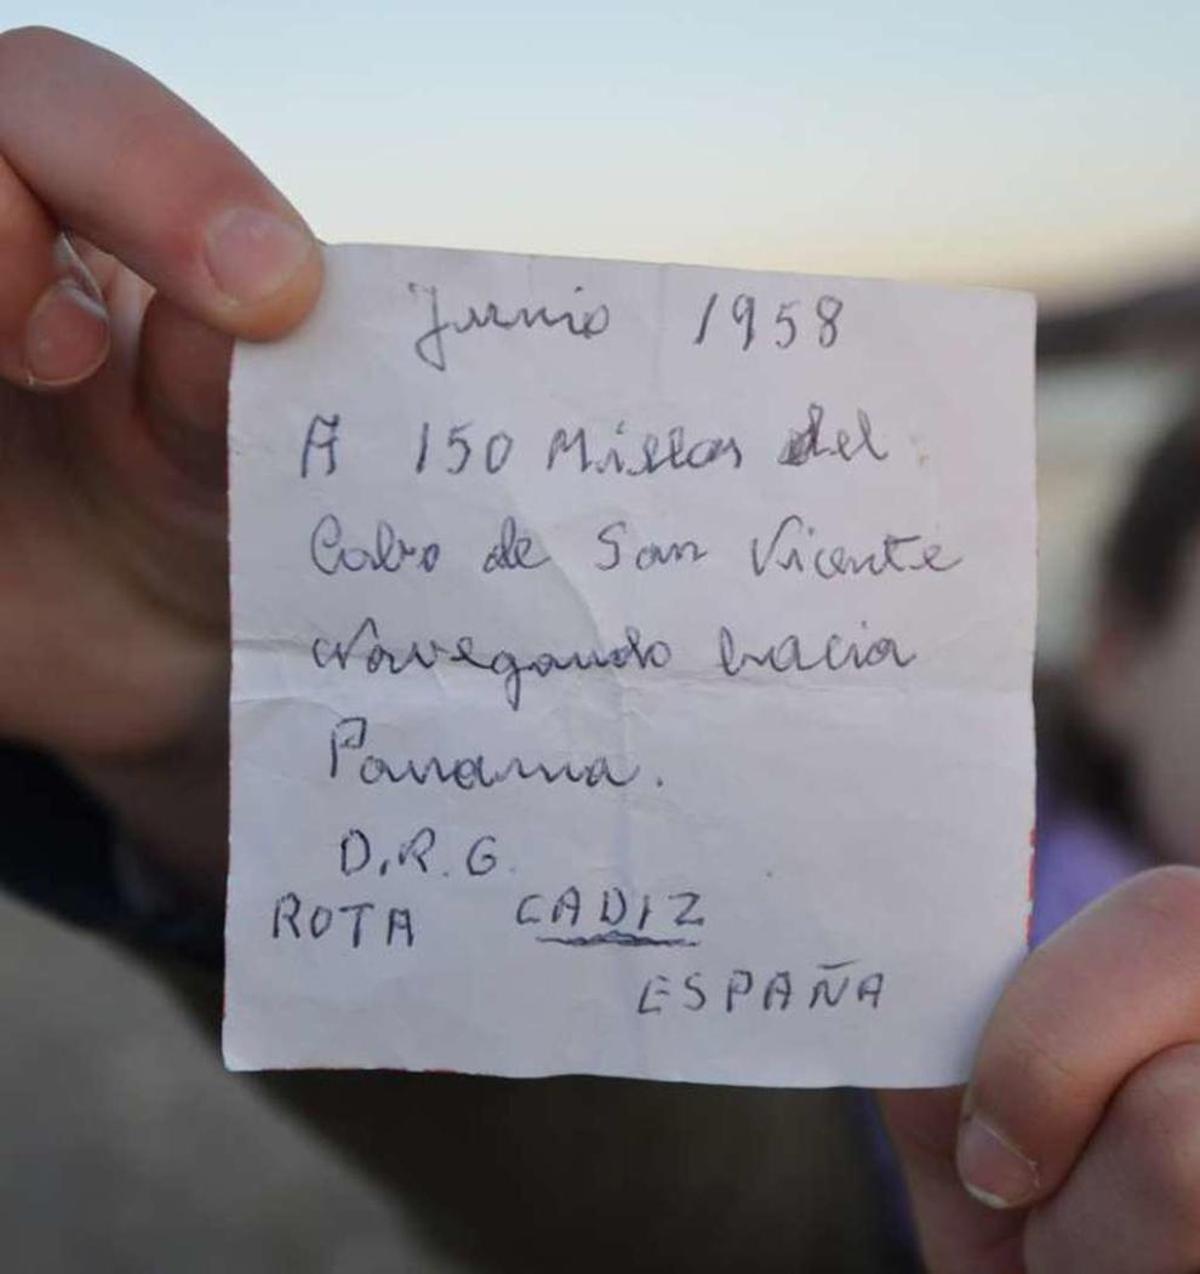 Junio 1958
A 150 Millas del
Cabo de San Vicente
Navegando hacia
Panama.
D.R.G.
ROTA CADIZ
ESPAÑA